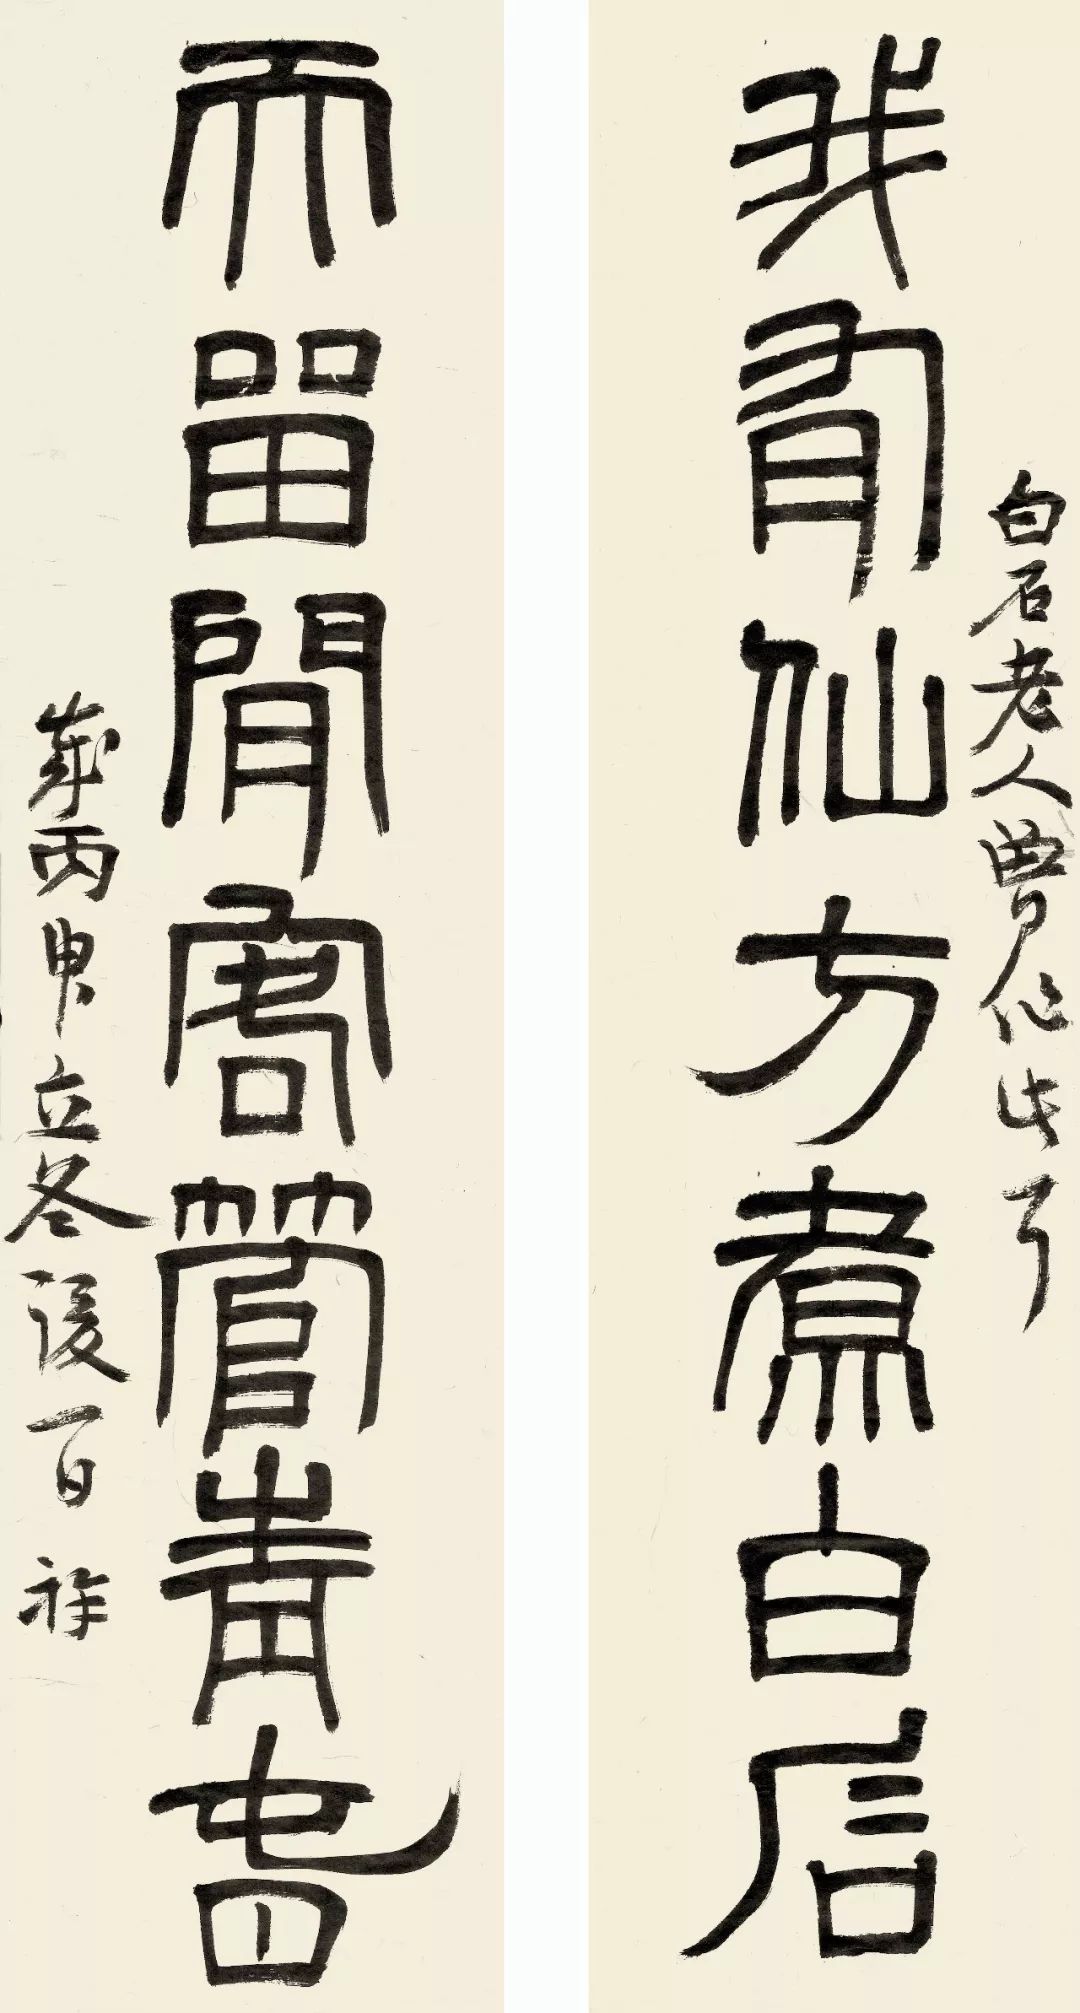 我有仙方煮白石
白石老人曾作此
而留閒客管青旾
歲丙申立冬後一日 祥